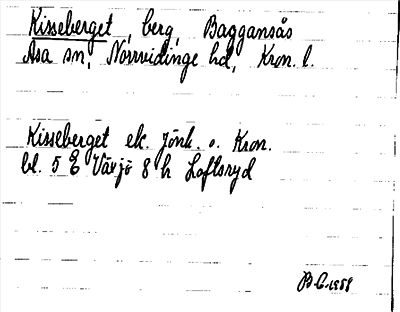 Kisseberget, berg, Baggansås
Asa sn, Norrvidinge hd, Kron. l.
Kisseberget ek. Jönk. o. Kron.
bl. 5 E Växjö 8 h Loftsryd
1958